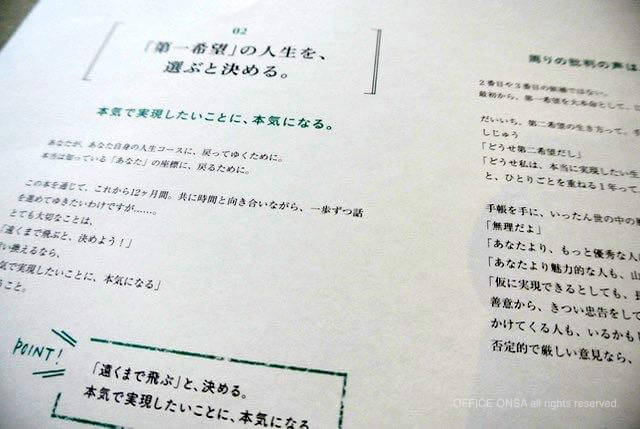 02
「第一希望」の人生を、
選ぶと決める。
本気で実現したいことに、本気になる。
あなたが、あなた自身の人生コースに、戻ってゆくために。
本当は知っている「あなた」の座標に、戻るために。
この本を通じて、これから12ヶ月間。共に時間と向き合いながら、一歩ずつ話
を進めてゆきたいわけですが……。
とても大切なことは、
「遠くまで飛ぶと、決めよう!」
い換えるなら、
気で実現したいことに、本気になる」
うこと。
POINT!
「遠くまで飛ぶ」と、決める。
本気で実現したいことに、本気になる
周りの批判の声は
2番目や3番目の候補ではない。
最初から、第一希望を大本命として、
だいいち、第二希望の生き方って、
しじゅう
「どうせ第二希望だし」
「どうせ私は、本当に実現したい生
と、ひとりごとを重ねる1年って
手帳を手に、いったん世の中の
「無理だよ」
「あなたより、もっと優秀な人
「あなたより魅力的な人も、山
「仮に実現できるとしても、
善意から、きつい忠告をして
かけてくる人も、いるかも
否定的で厳しい意見なら、
OFFICE ONSA all rights reserved.